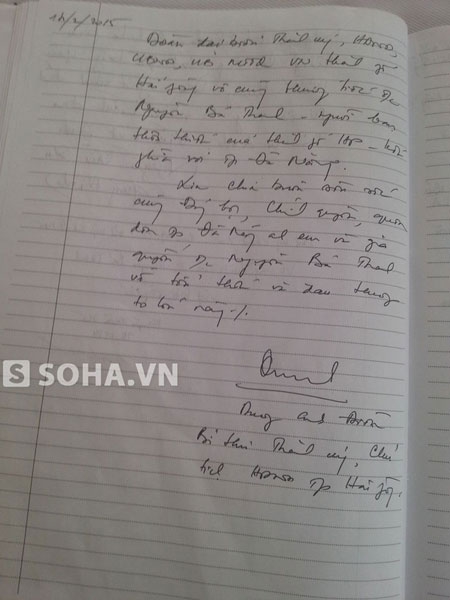 14/2/2015
Đoàn đại biểu Thành ủy, HĐND,
UBND, UB MTTQ VN thành phố
Hải Phòng vô cùng thương tiếc Đ/c
Nguyễn Bá Thanh - người bạn
thân thiết của thành phố HP - kết
nghĩa với Tp Đà Nẵng.
Xin chia buồn sâu sắc
cùng Đảng bộ, Chính quyền, quân
dân Tp Đà Nẵng và gia
quyến Đ/c Nguyễn Bá Thanh
về tổn thất và đau thương
to lớn này./.
SOHA.VN
Dương Anh Điền
Bí thư Thành ủy, Chủ
tịch HĐND Tp Hải Phòng.